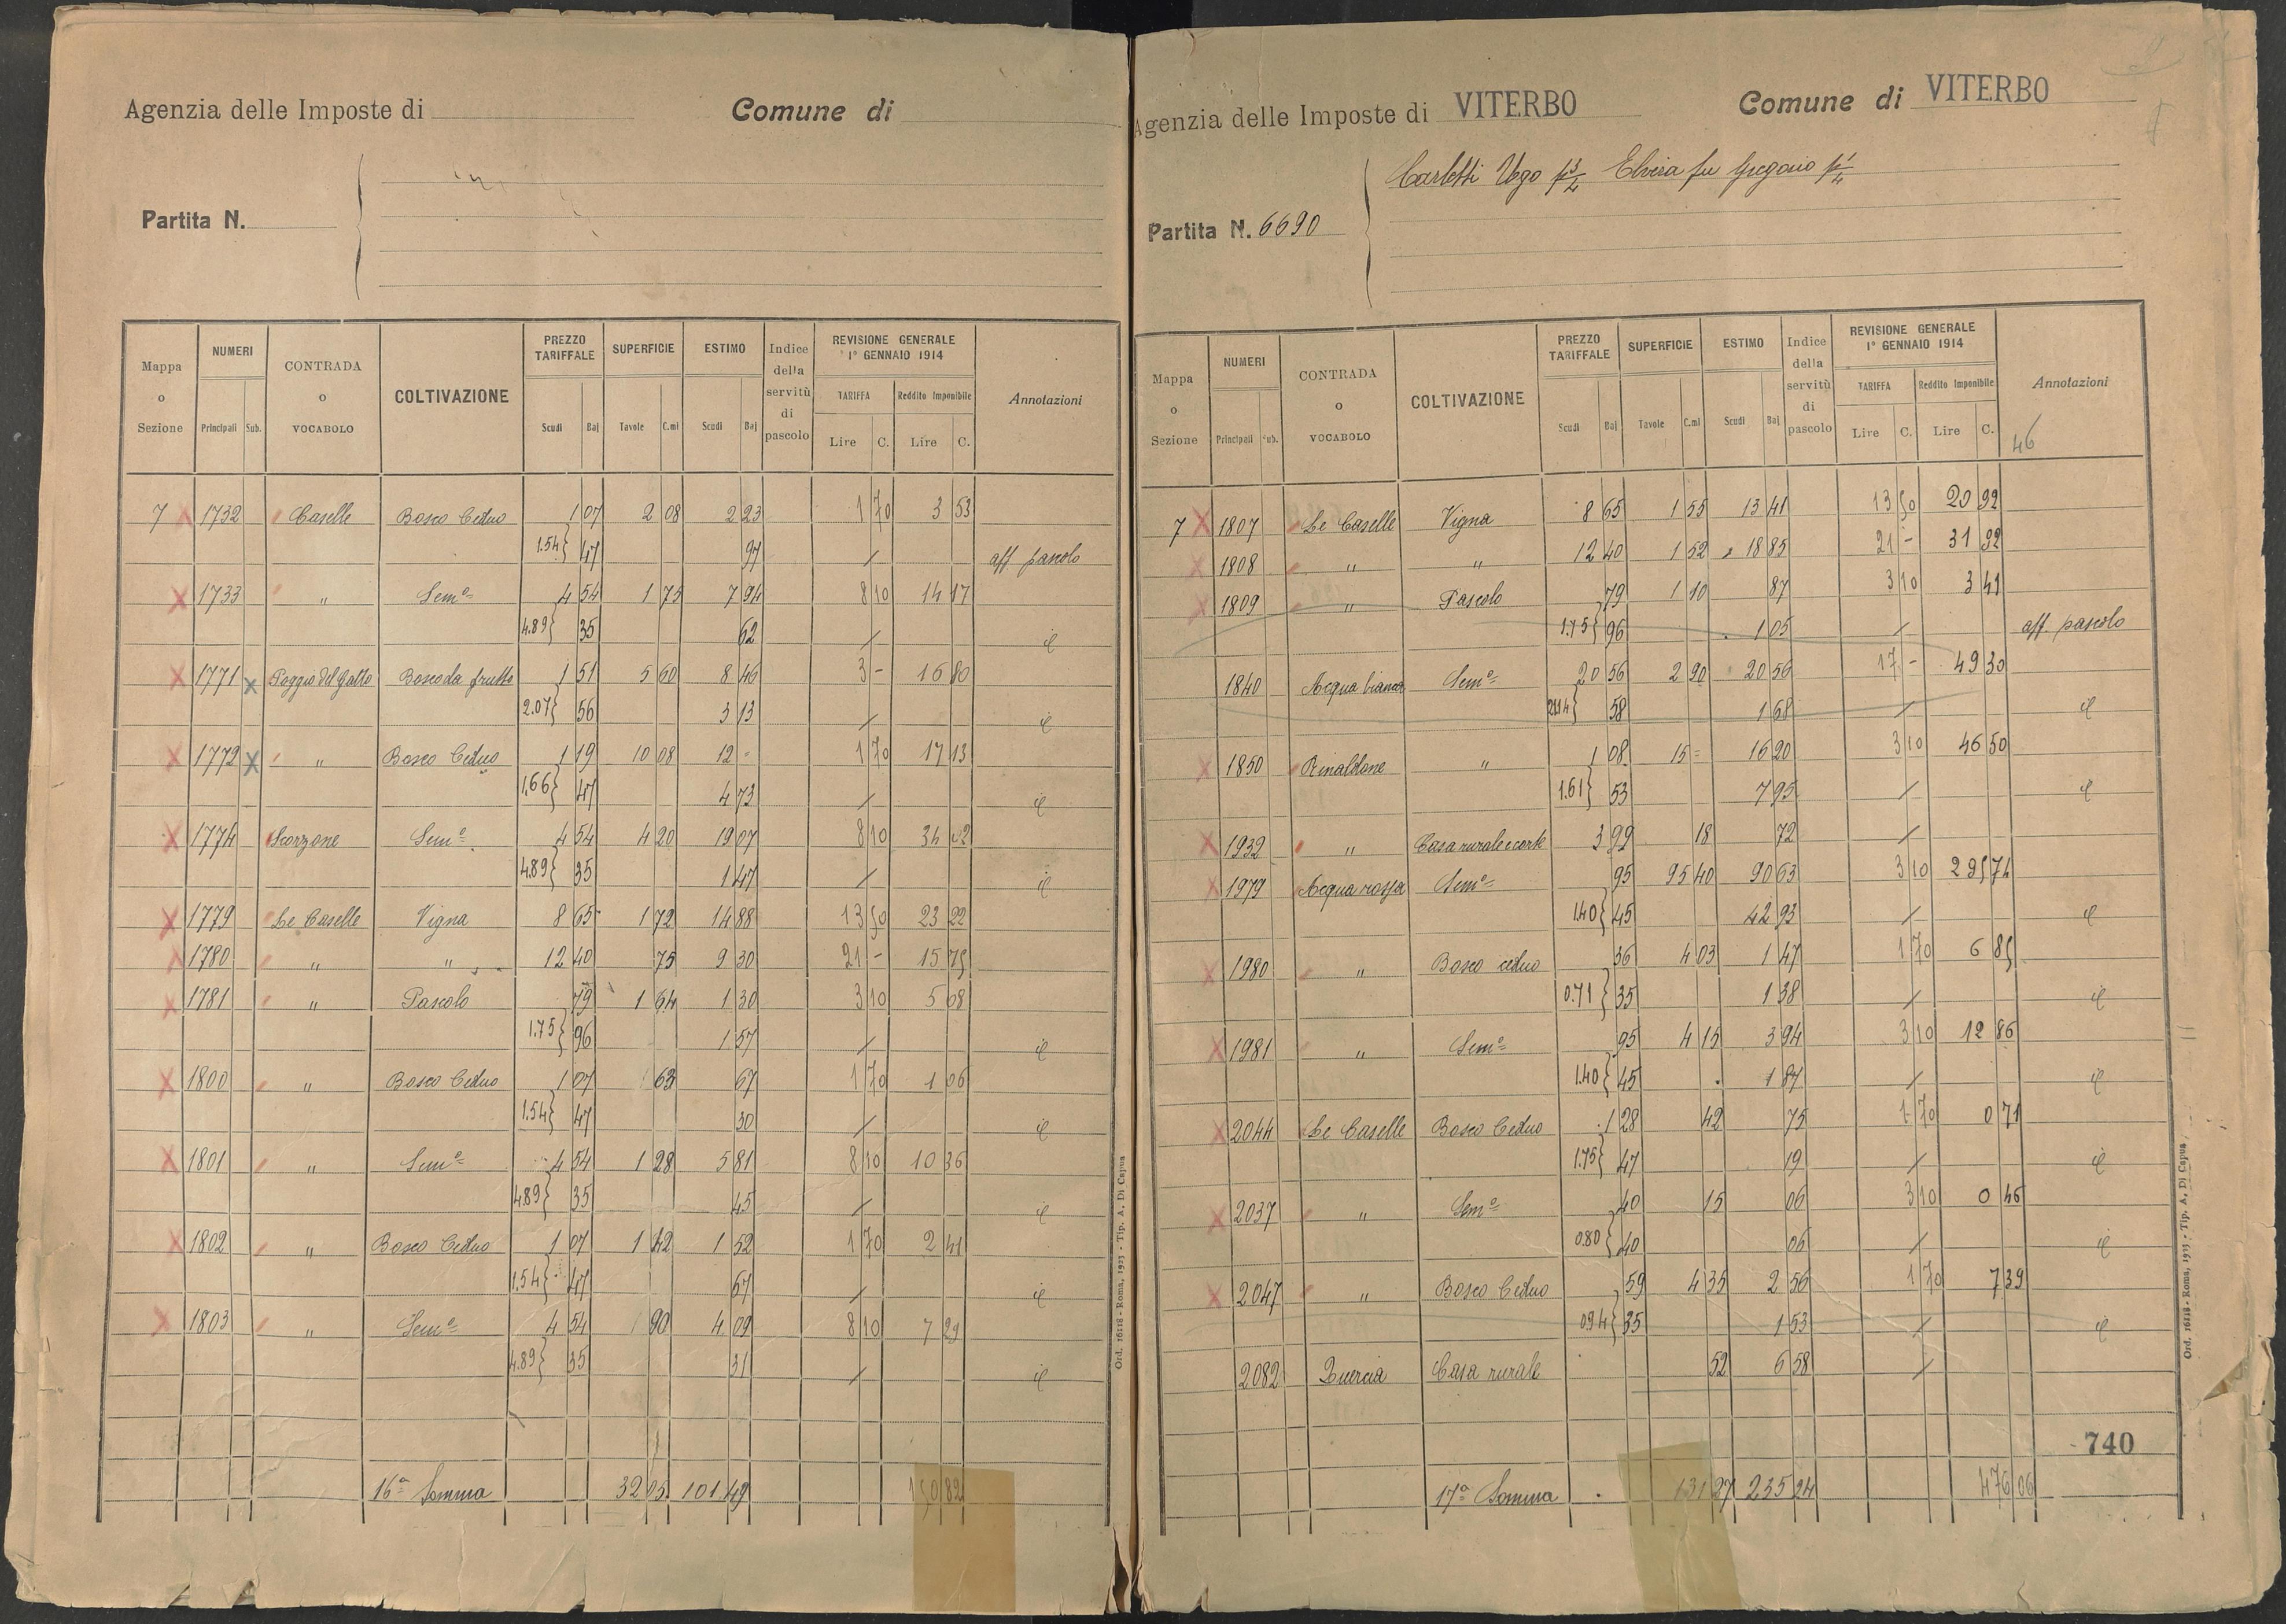 Agenzia delle Imposte di Comune di
Partita N.
Mappa o Sezione NUMERI Principali Sub. CONTRADA o VOCABOLO COLTIVAZIONE PREZZO TARIFFALE Scudi Baj SUPERFICIE Tavole C.mi ESTIMO Scudi Baj Indice della servitù di pascolo REVISIONE GENERALE 1° GENNAIO 1914 TARIFFA Lire C. Reddito Imponibile Lire C. Annotazioni
7 X 1732 Caselle Bosco Ceduo 1 07 2 08 2 23 1 70 3 53
1.54} 47 97 / aff pascolo
X 1733 " Sem° 4 54 1 75 7 94 8 10 14 17
4.89} 35 62 /
X 1771 X Poggio del Gallo Bosco da frutto 1 51 5 60 8 46 3 - 16 80
2.07} 56 3 13 /
X 1772 X " Bosco Ceduo 1 19 10 08 12 = 1 70 17 13
1.66} 47 4 73 /
X 1774 Scorzone Sem° 4 54 4 20 19 07 8 10 34 02
4.89} 35 1 47 /
X 1779 Le Caselle Vigna 8 65 1 72 14 88 13 50 23 22
X 1780 " " 12 40 75 9 30 21 - 15 75
X 1781 " Pascolo 79 1 64 1 30 3 10 5 08
1.75} 96 1 57 /
X 1800 " Bosco Ceduo 1 07 63 67 1 70 1 06
1.54} 47 30 /
X 1801 " Sem° 4 54 1 28 5 81 8 10 10 36
4.89} 35 45 /
X 1802 " Bosco Ceduo 1 07 1 42 1 52 1 70 2 41
1.54} 47 67 /
X 1803 " Sem° 4 54 90 4 09 8 10 7 29
4.89} 35 31 /
16ª Somma 32 05 101 49 150 82
Ord. 16118 - Roma, 1923 - Tip. A. Di Capua
Agenzia delle Imposte di VITERBO Comune di VITERBO
Carletti Ugo p 3/4 Elvira fu Gregorio p 1/4
Partita N. 6690
Mappa o Sezione NUMERI Principali Sub. CONTRADA o VOCABOLO COLTIVAZIONE PREZZO TARIFFALE Scudi Baj SUPERFICIE Tavole C.mi ESTIMO Scudi Baj Indice della servitù di pascolo REVISIONE GENERALE 1° GENNAIO 1914 TARIFFA Lire C. Reddito Imponibile Lire C. Annotazioni
46
7 X 1807 Le Caselle Vigna 8 65 1 55 13 41 13 50 20 92
X 1808 " " 12 40 1 52 18 85 21 - 31 92
X 1809 " Pascolo 79 1 10 87 3 10 3 41
1.75} 96 1 05 / aff. pascolo
1840 Acqua bianca Sem° 20 56 2 90 20 56 17 - 49 30
58 1 68 /
X 1850 Rinaldone " 1 08 15 = 16 20 3 10 46 50
1.61} 53 7 95 /
X 1932 " Casa rurale e corte 3 99 18 72 /
X 1979 Acqua rossa Sem° 95 95 40 90 63 3 10 295 74
1.40} 45 42 93 /
X 1980 " Bosco ceduo 36 4 03 1 47 1 70 6 85
0.71} 35 1 38 /
X 1981 " Sem° 95 4 15 3 94 3 10 12 86
1.40} 45 1 87 /
X 2044 Le Caselle Bosco Ceduo 1 28 42 75 1 70 0 71
1.75} 47 19 /
X 2037 " Sem° 40 15 06 3 10 0 46
0.80} 40 06 /
X 2047 " Bosco Ceduo 59 4 35 2 56 1 70 7 39
0.94} 35 1 53 /
2082 Quercia Casa rurale 52 6 58 /
740
17ª Somma 131 27 235 24 476 06
Ord. 16118 - Roma, 1923 - Tip. A. Di Capua